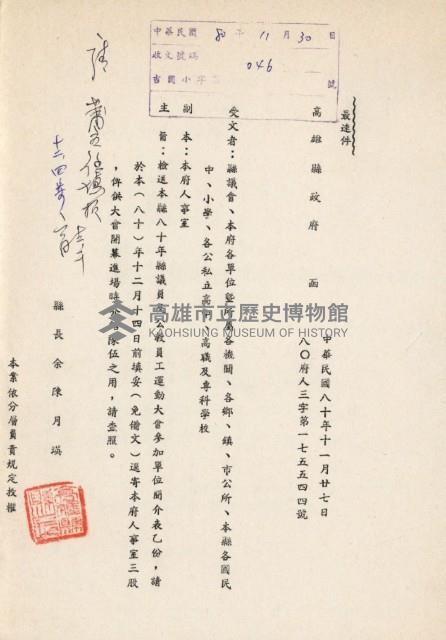 中華民國 80 年 11 月 30 日
收文號碼 046 號
吉國小字
最速件
高雄縣政府 函
中華民國八十年十一月廿七日
八〇府人三字第一七五五四四號
受文者：縣議會、本府各單位暨所屬各機關、各鄉、鎮、市公所、本縣各國民
中、小學、各公私立高中、高職及專科學校
副本：本府人事室
主旨：檢送本縣八十年縣議員暨公教員工運動大會參加單位簡介表乙份，請
於本（八十）年十二月十四日前填妥（免備文）逕寄本府人事室三股
，俾供大會開幕進場時介紹隊伍之用，請查照。
縣長 余陳月瑛
本案依分層負責規定授權
高雄市立歷史博物館
KAOHSIUNG MUSEUM OF HISTORY